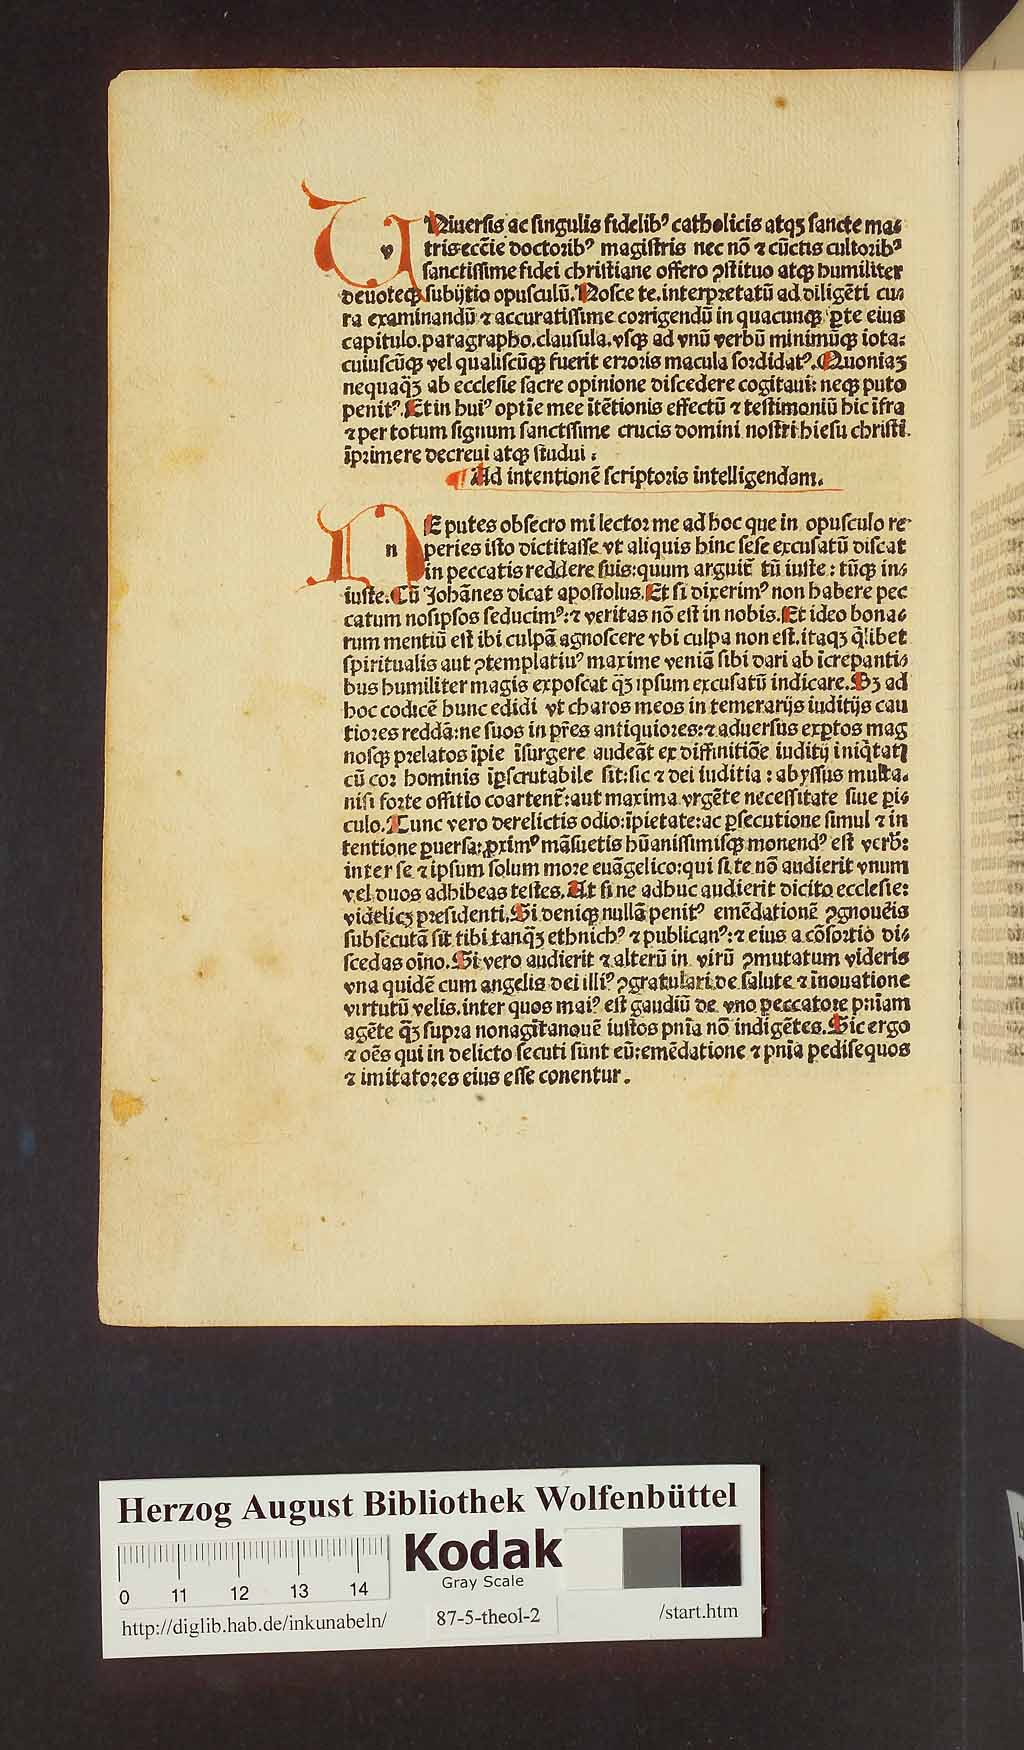 VNiuersis ac singulis fidelibꝰ catholicis atqꝫ sancte ma⸗
tris ecc̄ie doctoribꝰ magistris nec nō ⁊ cūctis cultoribꝰ
sanctissime fidei christiane offero ꝯstituo atqꝫ humiliter
deuoteqꝫ subijtio opusculū. Nosce te. interpretatū ad diligēti cu⸗
ra examinandū ⁊ accuratissime corrigendū in quacunqꝫ ꝑte eius
capitulo. paragrapho. clausula. vsqꝫ ad vnū verbū minimūqꝫ iota:
cuiuscūqꝫ vel qualiscūqꝫ fuerit erroris macula sordidatꝰ. Quoniaꝫ
nequaq̄ꝫ ab ecclesie sacre opinione discedere cogitaui: neqꝫ puto
penitꝰ. Et in huiꝰ optīe mee ītētionis effectū ⁊ testimoniū hic īfra
⁊ per totum signum sanctssime crucis domini nostri hiesu christi.
īprimere decreui atqꝫ studui :
¶ Ad intentionē scriptoris intelligendam.
NE putes obsecro mi lector me ad hoc que in opusculo re⸗
peries isto dictitasse vt aliquis hinc sese excusatū discat
in peccatis reddere suis: quum arguit̄ tū iuste: tūqꝫ in⸗
iuste. Cū Johānes dicat apostolus. Et si dixerimꝰ non habere pec
catum nosipsos seducimꝰ: ⁊ veritas nō est in nobis. Et ideo bona⸗
rum mentiū est ibi culpā agnoscere vbi culpa non est. itaqꝫ q̄libet
spiritualis aut ꝯtemplatiuꝰ maxime veniā sibi dari ab īcrepanti⸗
bus humiliter magis exposcat q̄ꝫ ipsum excusatū indicare. Sꝫ ad
hoc codicē hunc edidi vt charos meos in temerarijs iuditijs cau
tiores reddā: ne suos in pr̄es antiquiores: ⁊ aduersus exꝑtos mag
nosqꝫ prelatos īpie īsurgere audeāt ex diffinitiōe iuditij iniq̄tatꝭ
cū cor hominis īꝑscrutabile sit: sic ⁊ dei iuditia : abyssus multa.
nisi forte offitio coartent̄: aut maxima vrgēte necessitate siue ꝑi⸗
culo. Tunc vero derelictis odio: īpietate: ac ꝑsecutione simul ⁊ in
tentione ꝑuersa: ꝓximꝰ māsuetis hūanissimisqꝫ monendꝰ est verb̄:
inter se ⁊ ipsum solum more euāgelico: qui si te nō audierit vnum
vel duos adhibeas testes. At si ne adhuc audierit dicito ecclesie:
videlicꝫ presidenti. Si deniqꝫ nullā penitꝰ emēdationē ꝯgnouēis
subsecutā sit tibi tanq̄ꝫ ethnichꝰ ⁊ publicanꝰ: ⁊ eius a cōsortio di⸗
scedas oīno. Si vero audierit ⁊ alterū in virū ꝯmutatum videris
vna quidē cum angelis dei illiꝰ ꝯgratulari de salute ⁊ īnouatione
virtutū velis. inter quos maiꝰ est gaudiū de vno peccatore pniam
agēte q̄ꝫ supra nonagītanouē iustos pnīa nō indigētes. Sic ergo
⁊ oēs qui in delicto secuti sunt eū: emēdatione ⁊ pnīa pedisequos
⁊ imitatores eius esse conentur.
Herzog August Bibliothek Wolfenbüttel
Kodak
Gray Scale
0 11 12 13 14
http://diglib.hab.de/inkunabeln/ 87-5-theol-2 /start.htm